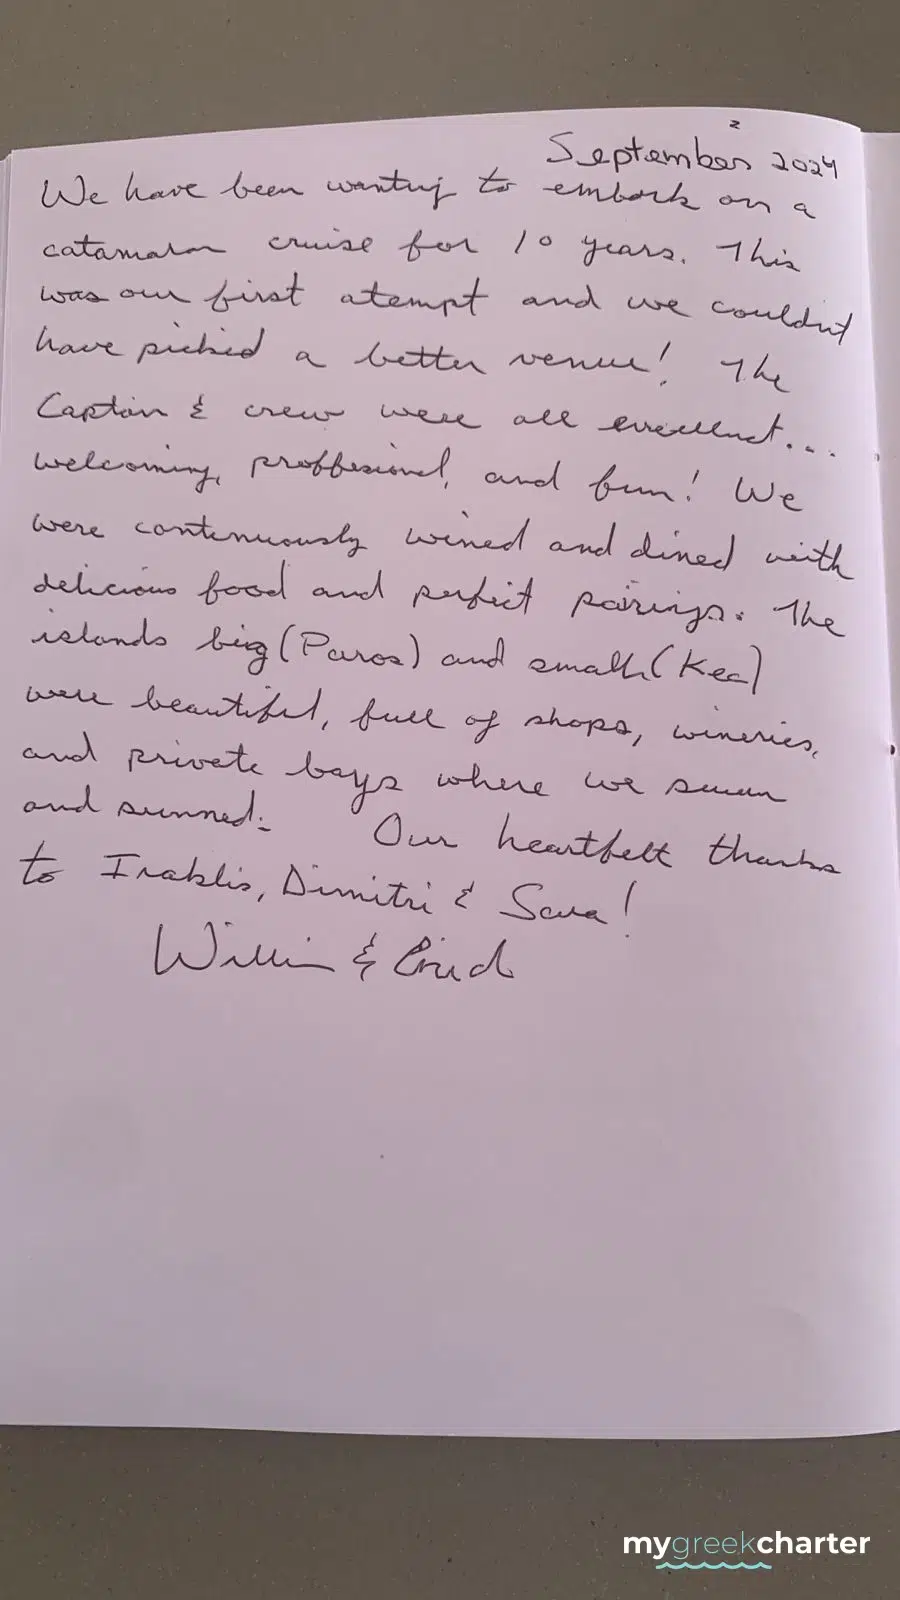 September 2024
We have been wanting to embark on a
catamaran cruise for 10 years. This
was our first atempt and we couldnt
have picked a better venue! The
Captain & crew were all excellent...
welcoming, proffesional, and fun! We
were continuously wined and dined with
delicious food and perfect pairings. The
islands big (Paros) and small (Kea)
were beautiful, full of shops, wineries,
and private bays where we swam
and sunned. Our heartfelt thanks
to Iraklis, Dimitri & Sara!
&
mygreekcharter